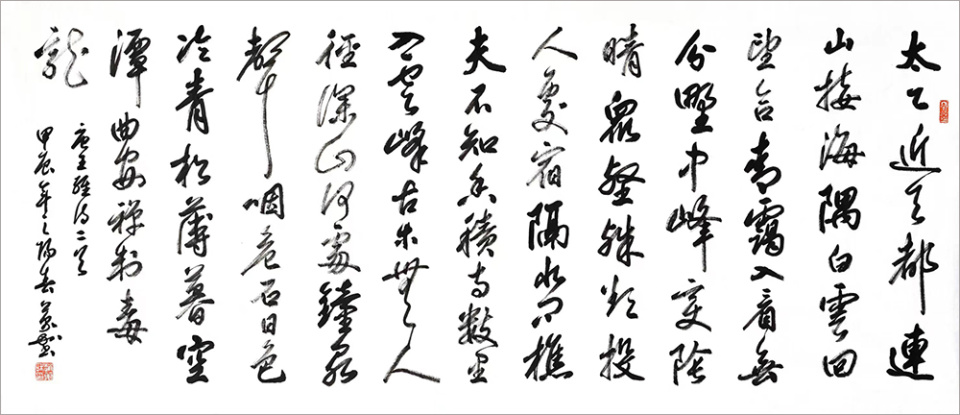 太乙近天都連
山接海隅白雲回
望合青靄入看無
分野中峰變陰
晴眾壑殊欲投
人處宿隔水問樵
夫不知香積寺數里
入雲峰古木無人
徑深山何處鐘泉
聲咽危石日色
冷青松薄暮空
潭曲安禪制毒
龍
唐王維詩二首
甲辰年之陽春